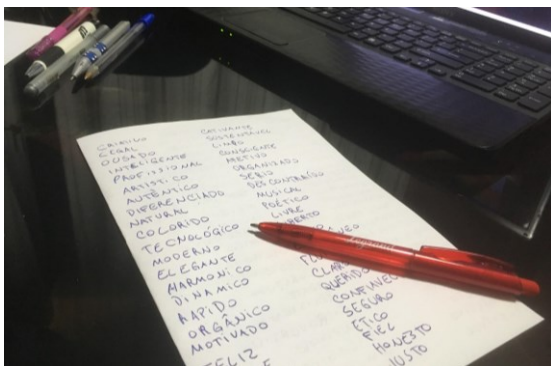 CRIATIVO
LEGAL
OUSADO
INTELIGENTE
PROFISSIONAL
ARTÍSTICO
AUTÊNTICO
DIFERENCIADO
NATURAL
COLORIDO
TECNOLÓGICO
MODERNO
ELEGANTE
HARMONICO
DINAMICO
RAPIDO
ORGÂNICO
MOTIVADO
FELIZ
CATIVANTE
SUSTENTÁVEL
LINDO
CONSCIENTE
AFETIVO
ORGANIZADO
SERIO
DESCONTRAÍDO
MUSICAL
POÉTICO
LIVRE
QUERIDO
SEGURO
ETICO
FIEL
HONESTO
JUSTO